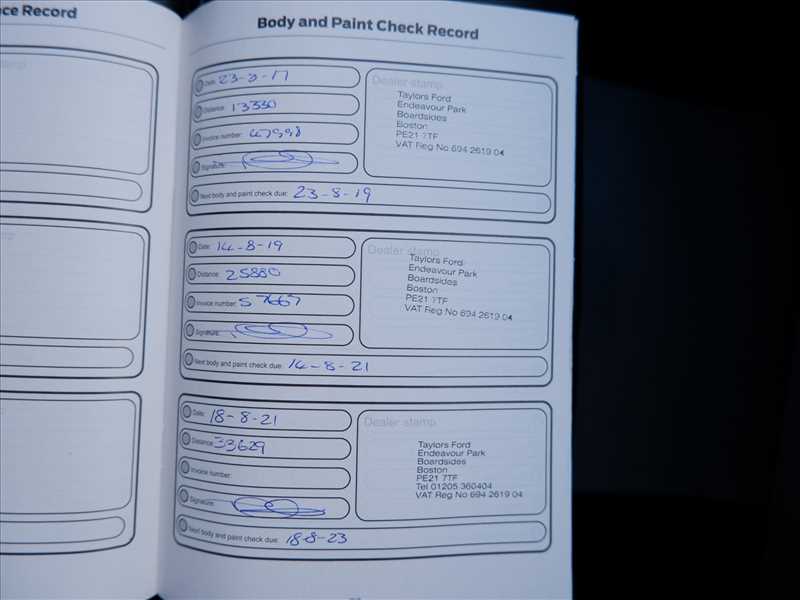 ce Record
Body and Paint Check Record
Date: 23-3-17
Dealer stamp
Taylors Ford
Endeavour Park
Boardsides
Boston
PE21 7TF
VAT Reg No 694 2619 04
Distance: 13330
Invoice number: 47998
Signature:
Next body and paint check due: 23-8-19
Date: 14-8-19
Dealer stamp
Taylors Ford
Endeavour Park
Boardsides
Boston
PE21 7TF
VAT Reg No 694 2619 04
Distance: 25880
Invoice number: 57667
Signature:
Next body and paint check due: 14-8-21
Date: 18-8-21
Dealer stamp
Taylors Ford
Endeavour Park
Boardsides
Boston
PE21 7TF
Tel 01205 360404
VAT Reg No 694 2619 04
Distance: 33629
Invoice number:
Signature:
Next body and paint check due: 18-8-23